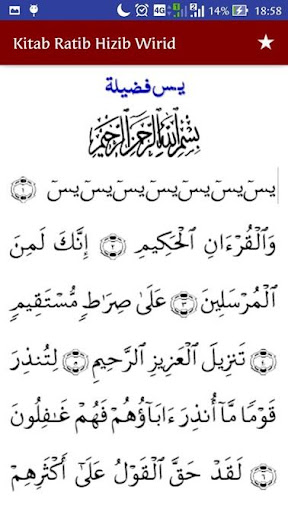 14% 18:58
4G
Kitab Ratib Hizib Wirid
يس فضيلة
بِسْمِ ٱللَّهِ ٱلرَّحْمَٰنِ ٱلرَّحِيمِ
يسٓ يسٓ يسٓ يسٓ يسٓ يسٓ يسٓ ۝١
وَٱلْقُرْءَانِ ٱلْحَكِيمِ ۝٢ إِنَّكَ لَمِنَ
ٱلْمُرْسَلِينَ ۝٣ عَلَىٰ صِرَٰطٍ مُّسْتَقِيمٍ
۝٤ تَنزِيلَ ٱلْعَزِيزِ ٱلرَّحِيمِ ۝٥ لِتُنذِرَ
قَوْمًا مَّآ أُنذِرَ ءَابَآؤُهُمْ فَهُمْ غَٰفِلُونَ
۝٦ لَقَدْ حَقَّ ٱلْقَوْلُ عَلَىٰٓ أَكْثَرِهِمْ